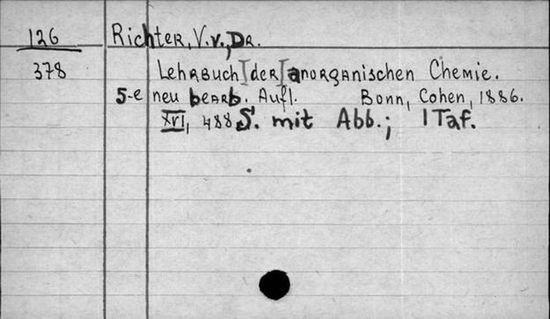 126 Richter, V. v., Dr.
378 Lehrbuch der anorganischen Chemie.
5-e neu bearb. Aufl. Bonn, Cohen, 1886.
XVI, 488 S. mit Abb.; 1 Taf.